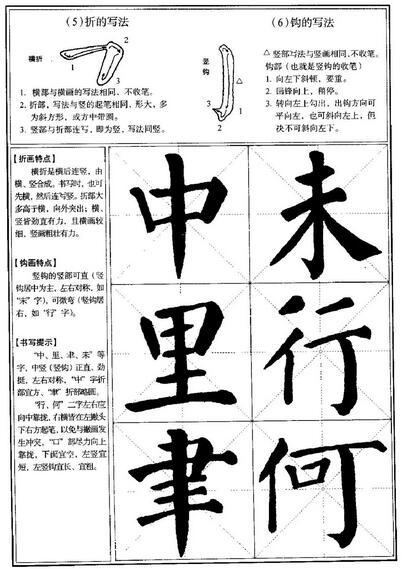 (5)折的写法
横折
2
1
3
1. 横部与横画的写法相同，不收笔。
2. 折部，写法与竖的起笔相同，形大，多
为斜方形，或方中带圆。
3. 竖部与折部连写，即为竖，写法同竖。
(6)钩的写法
竖钩
1
3
2
△竖部写法与竖画相同，不收笔。
钩部（也就是竖钩的收笔）
1. 向左下斜顿，要重。
2. 回锋向上，稍停。
3. 转向左上勾出，出钩方向可
平向左，也可斜向左上，但
决不可斜向左下。
【折画特点】
横折是横后连竖，由
横、竖合成。书写时，也可
先横，然后连写竖。折部大
多高于横，向外突出；横、
竖皆劲直有力，且横画较
细，竖画粗壮有力。
【钩画特点】
竖钩的竖部可直（竖
钩居中为主，左右对称，如
“未”字），可微弯（竖钩居
右，如“行”字）。
【书写提示】
“中、里、聿、未”等
字，中竖（竖钩）正直，劲
挺，左右对称，“中”字折
部宜方、“聿”折部略圆。
“行、何”二字左右应
向中靠拢，右横皆在左撇头
下右方起笔，以免与撇画发
生冲突，“口”部尽力向上
靠拢，下面宜空，左竖宜
短，左竖钩宜长、宜粗。
中未
里行
聿何